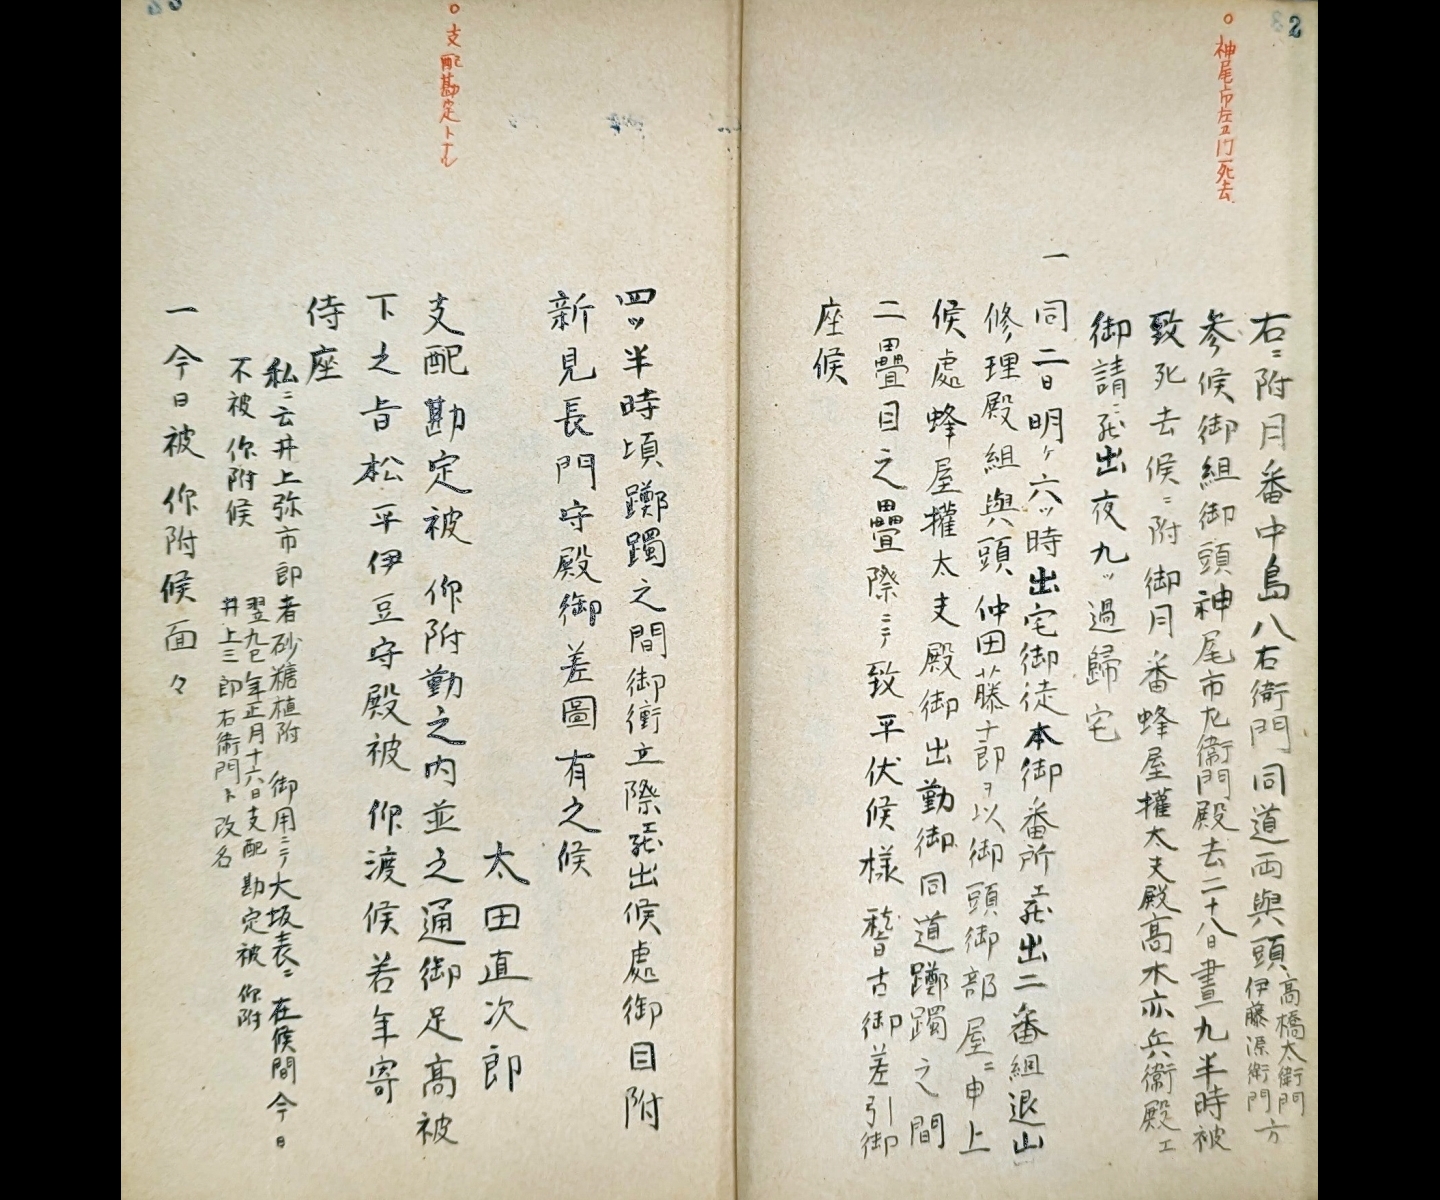 82
○神尾市左ヱ門死去
右ニ附月番中島八右衛門同道両與頭高橋太衛門
伊藤源衛門方
参候御組御頭神尾市左衛門殿去二十八日晝九半時被
致死去候ニ附御月番蜂屋權太夫殿高木亦兵衛殿エ
御請ニ罷出夜九ッ過歸宅
一同二日明ケ六ッ時出宅御徒本御番所罷出二番組退山
修理殿組與頭仲田藤十郎ヲ以御頭御部屋ニ申上
候處蜂屋權太夫殿御出勤御同道躑躅之間
二疊目之疊際ニテ致平伏候様稽古御差引御
座候
○支配勘定トナル
四ッ半時頃躑躅之間御衝立際罷出候處御目附
新見長門守殿御差圖有之候
太田直次郎
支配勘定被仰附勤之内並之通御足高被
下之旨松平伊豆守殿被仰渡候若年寄
侍座
私ニ云井上弥市郎者砂糖植附御用ニテ大坂表ニ在候間今日
不被仰附候翌九巳年正月十六日支配勘定被仰附
井上三郎右衛門ト改名
一今日被仰附候面々